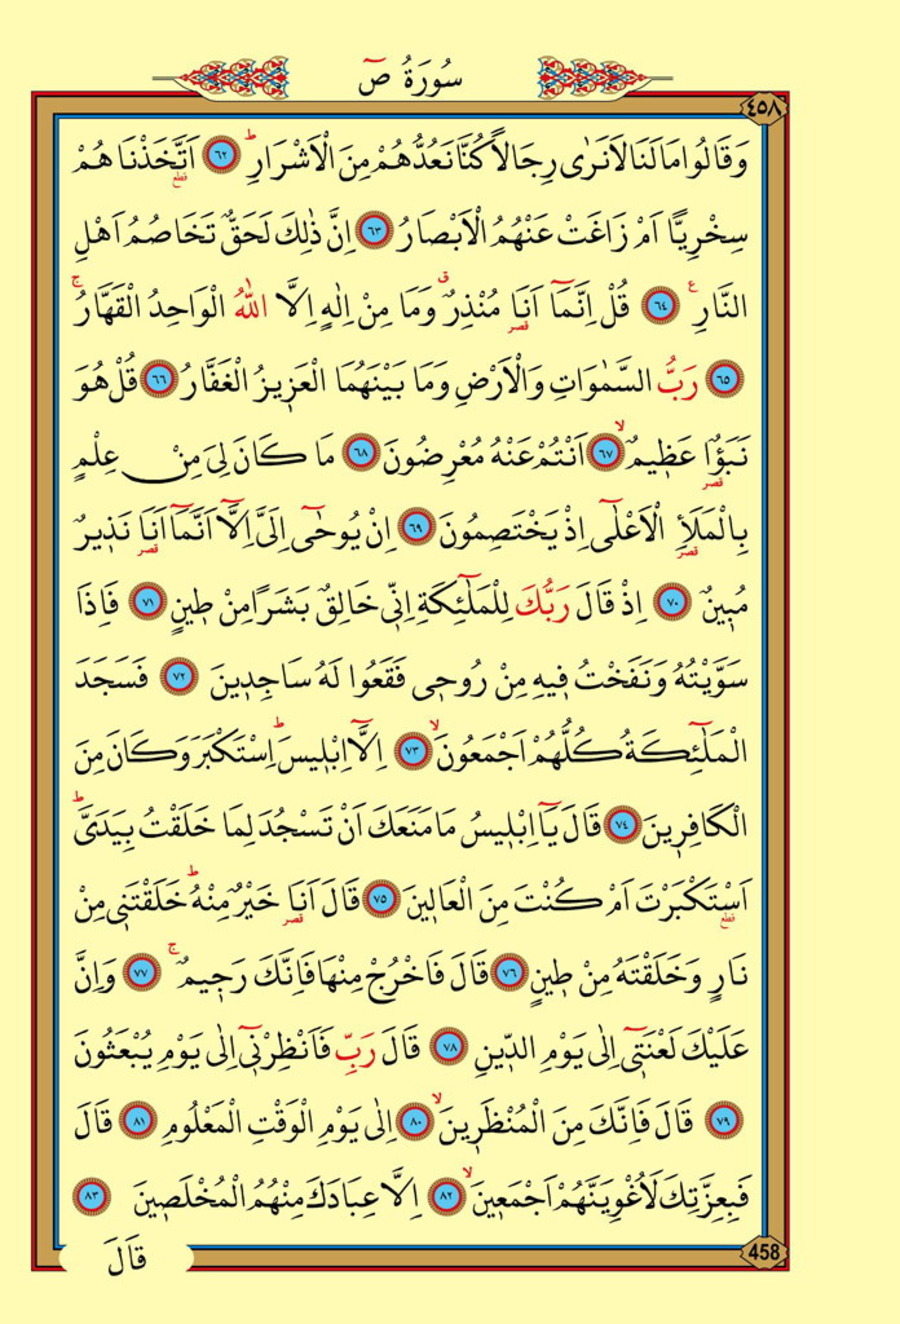 سُورَةُ صٓ
٤٥٨
وَقَالُوا مَا لَنَا لَا نَرٰى رِجَالًا كُنَّا نَعُدُّهُمْ مِنَ الْاَشْرَارِۜ ﴿٦٢﴾ اَتَّخَذْنَاهُمْ
قطع
سِخْرِيًّا اَمْ زَاغَتْ عَنْهُمُ الْاَبْصَارُ ﴿٦٣﴾ اِنَّ ذٰلِكَ لَحَقٌّ تَخَاصُمُ اَهْلِ
النَّارِ۟ ﴿٦٤﴾ قُلْ اِنَّمَٓا اَنَا۬ مُنْذِرٌۗ وَمَا مِنْ اِلٰهٍ اِلَّا اللّٰهُ الْوَاحِدُ الْقَهَّارُۚ
قصر
﴿٦٥﴾ رَبُّ السَّمٰوَاتِ وَالْاَرْضِ وَمَا بَيْنَهُمَا الْعَزِيزُ الْغَفَّارُ ﴿٦٦﴾ قُلْ هُوَ
نَبَؤٌا عَظِيمٌۙ ﴿٦٧﴾ اَنْتُمْ عَنْهُ مُعْرِضُونَ ﴿٦٨﴾ مَا كَانَ لِيَ مِنْ عِلْمٍ
قصر
بِالْمَلَأِ الْاَعْلٰٓى اِذْ يَخْتَصِمُونَ ﴿٦٩﴾ اِنْ يُوحٰٓى اِلَيَّ اِلَّٓا اَنَّمَٓا اَنَا۬ نَذِيرٌ
قصر قصر
مُبِينٌ ﴿٧٠﴾ اِذْ قَالَ رَبُّكَ لِلْمَلٰٓئِكَةِ اِنّ۪ي خَالِقٌ بَشَرًا مِنْ طِينٍ ﴿٧١﴾ فَاِذَا
سَوَّيْتُهُ وَنَفَخْتُ فِيهِ مِنْ رُوحِي فَقَعُوا لَهُ سَاجِدِينَ ﴿٧٢﴾ فَسَجَدَ
الْمَلٰٓئِكَةُ كُلُّهُمْ اَجْمَعُونَۙ ﴿٧٣﴾ اِلَّٓا اِبْلِيسَۜ اِسْتَكْبَرَ وَكَانَ مِنَ
الْكَافِرِينَ ﴿٧٤﴾ قَالَ يَٓا اِبْلِيسُ مَا مَنَعَكَ اَنْ تَسْجُدَ لِمَا خَلَقْتُ بِيَدَيَّۜ
اَسْتَكْبَرْتَ اَمْ كُنْتَ مِنَ الْعَالِينَ ﴿٧٥﴾ قَالَ اَنَا۬ خَيْرٌ مِنْهُۜ خَلَقْتَنِي مِنْ
قطع قصر
نَارٍ وَخَلَقْتَهُ مِنْ طِينٍ ﴿٧٦﴾ قَالَ فَاخْرُجْ مِنْهَا فَاِنَّكَ رَجِيمٌۚ ﴿٧٧﴾ وَاِنَّ
عَلَيْكَ لَعْنَت۪ٓي اِلٰى يَوْمِ الدِّينِ ﴿٧٨﴾ قَالَ رَبِّ فَاَنْظِرْن۪ٓي اِلٰى يَوْمِ يُبْعَثُونَ
﴿٧٩﴾ قَالَ فَاِنَّكَ مِنَ الْمُنْظَرِينَۙ ﴿٨٠﴾ اِلٰى يَوْمِ الْوَقْتِ الْمَعْلُومِ ﴿٨١﴾ قَالَ
فَبِعِزَّتِكَ لَاُغْوِيَنَّهُمْ اَجْمَعِينَۙ ﴿٨٢﴾ اِلَّا عِبَادَكَ مِنْهُمُ الْمُخْلَصِينَ ﴿٨٣﴾
قَالَ
458